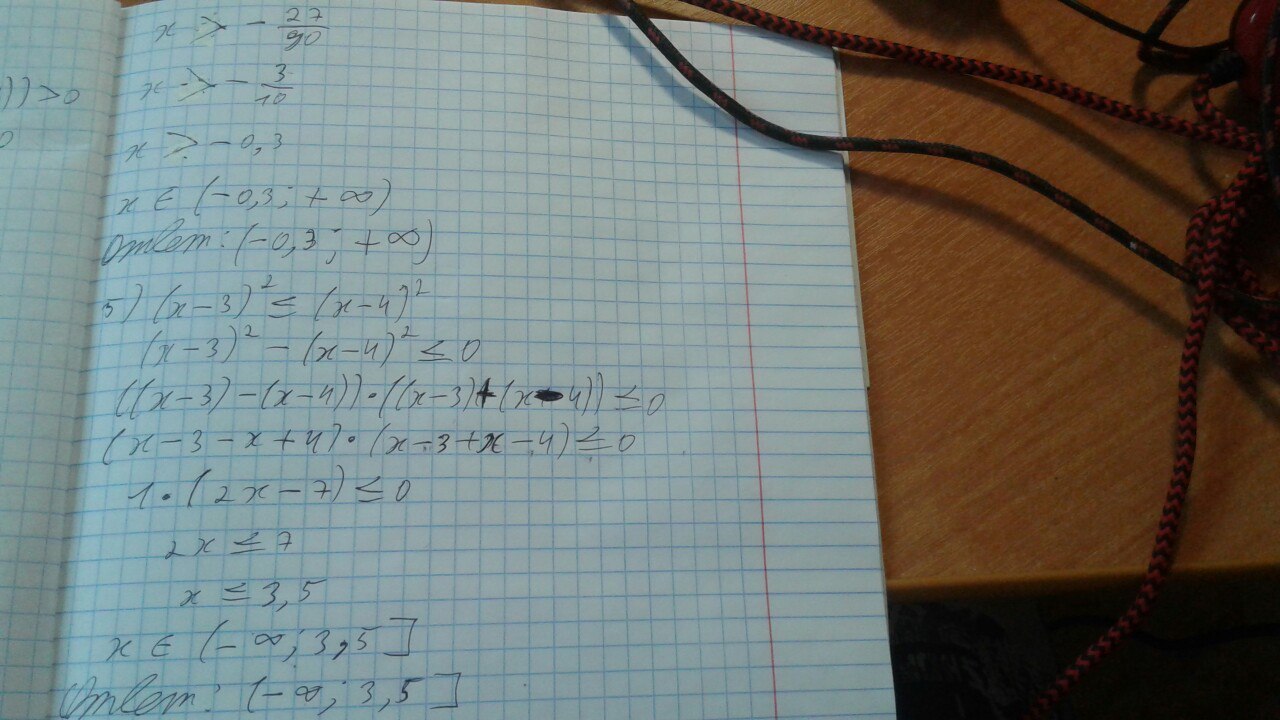 ))>0
0
x > - 27/90
x > - 3/10
x > - 0,3
x ∈ (-0,3; +∞)
Ответ: (-0,3; +∞)
5) (x-3)² ≤ (x-4)²
(x-3)² - (x-4)² ≤ 0
((x-3)-(x-4))·((x-3)+(x-4)) ≤ 0
(x-3-x+4)·(x-3+x-4) ≤ 0
1·(2x-7) ≤ 0
2x ≤ 7
x ≤ 3,5
x ∈ (-∞; 3,5]
Ответ: (-∞; 3,5]